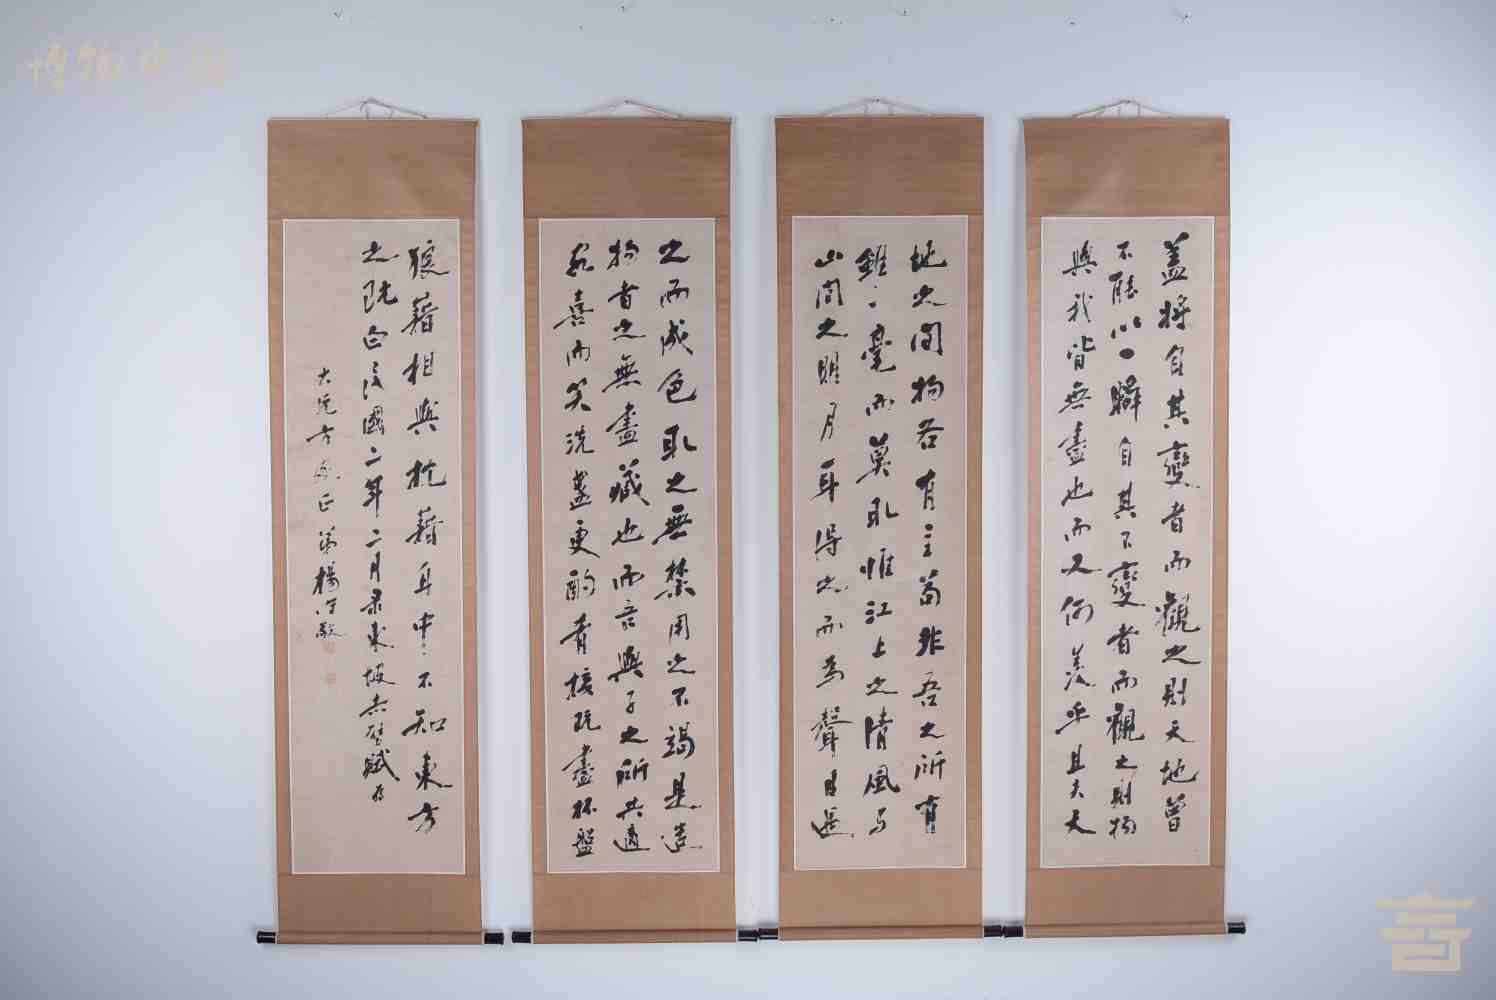 蓋將自其變者而觀之則天地曾
不能以一瞬自其不變者而觀之則物
與我皆無盡也而又何羨乎且夫天
地之間物各有主苟非吾之所有
雖一毫而莫取惟江上之清風與
山間之明月耳得之而為聲目遇
之而成色取之無禁用之不竭是造
物者之無盡藏也而吾與子之所共適
客喜而笑洗盞更酌肴核既盡杯盤
狼藉相與枕藉舟中不知東方
之既白 民國二年二月录東坡赤壁賦 為
大 方 正 弟楊守敬